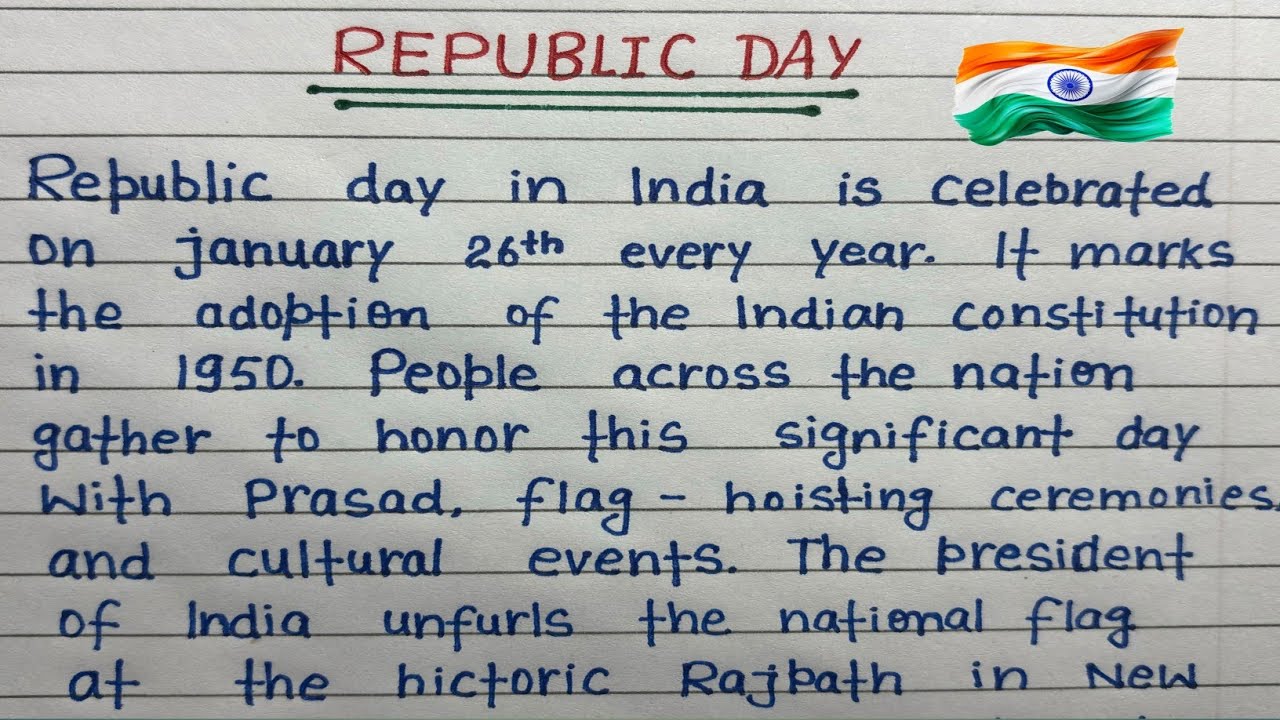 REPUBLIC DAY
Republic day in India is celebrated
on january 26th every year. It marks
the adoption of the Indian constitution
in 1950. People across the nation
gather to honor this significant day
With Prasad, flag - hoisting ceremonies,
and cultural events. The president
of India unfurls the national flag
at the hictoric Rajpath in New